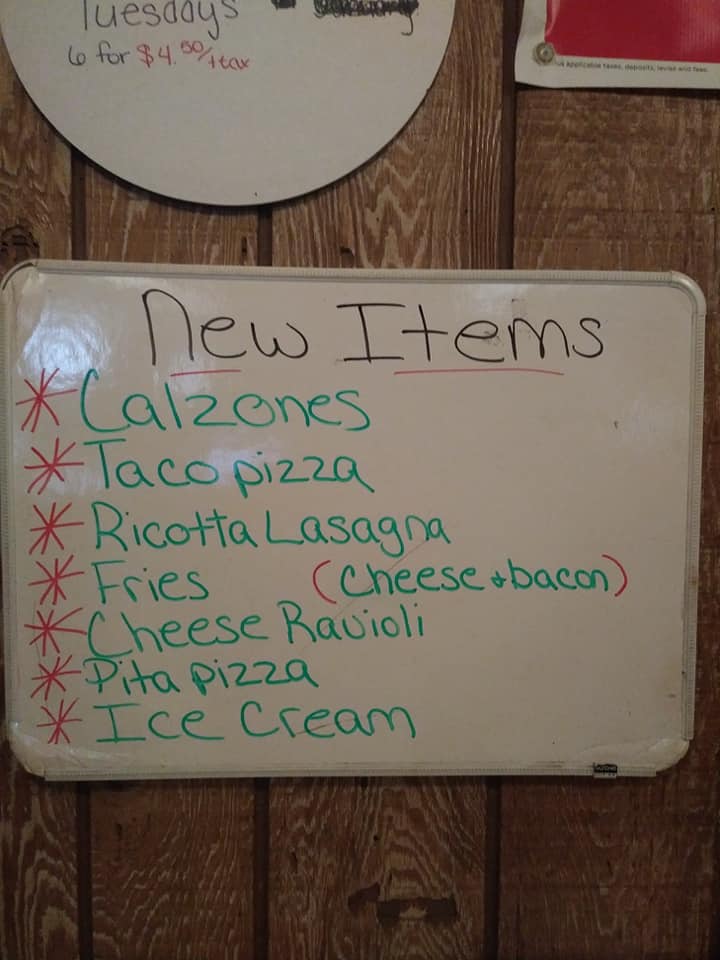 Tuesdays -
6 for $4.50/+tax
applicable taxes, deposits, levies and fees.
New Items
* Calzones
* Taco pizza
* Ricotta Lasagna
* Fries (cheese + bacon)
* Cheese Ravioli
* Pita pizza
* Ice Cream